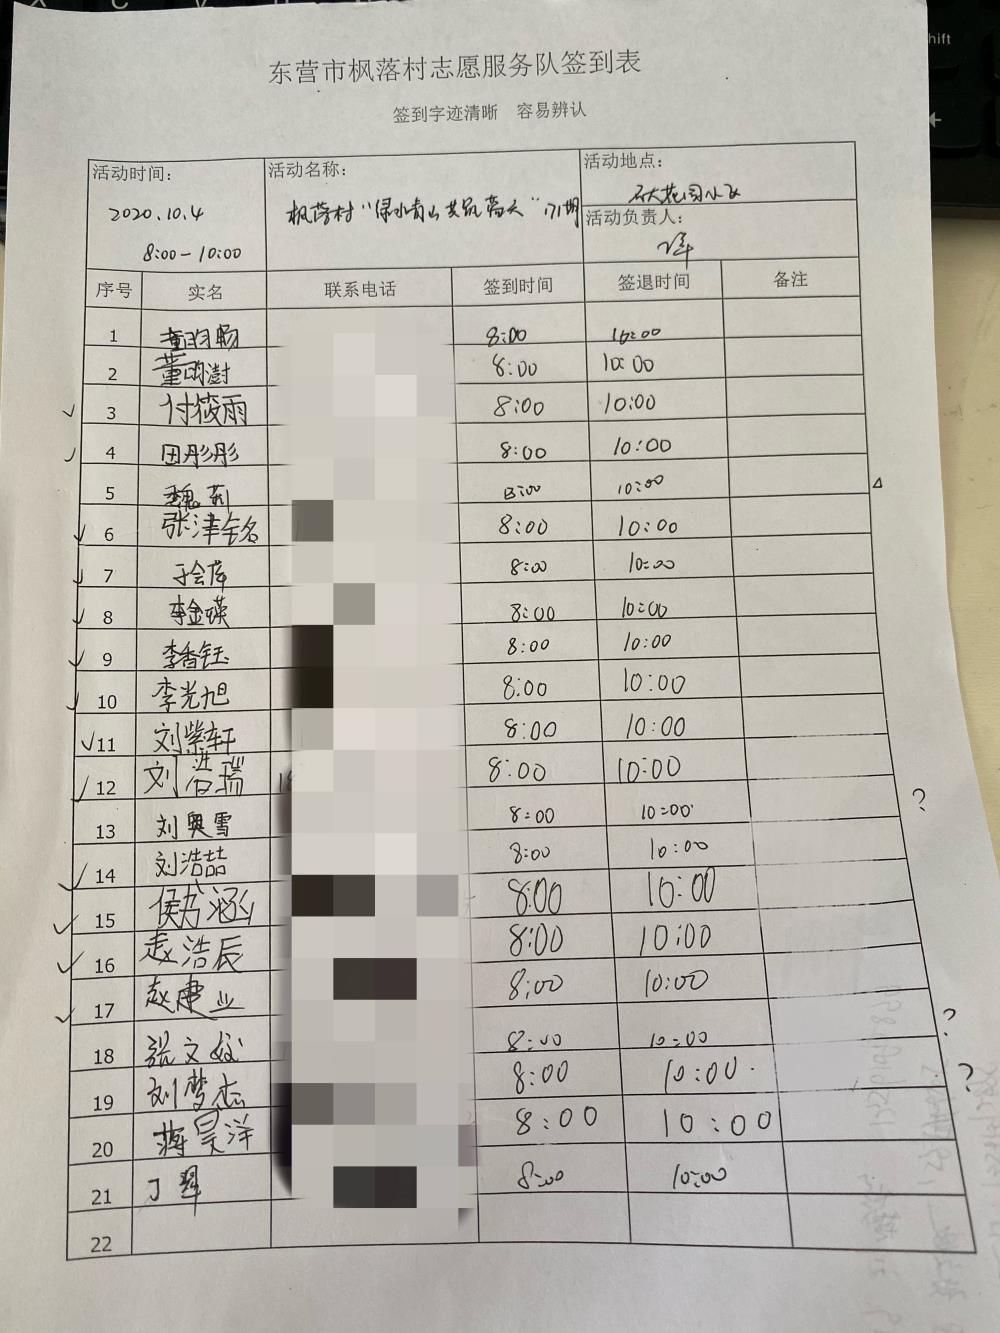 东营市枫落村志愿服务队签到表
签到字迹清晰 容易辨认
活动时间: 活动名称: 活动地点:
2020.10.4 枫落村"绿水青山共筑蓝天" 石大花园小区
8:00-10:00 活动负责人:
序号 实名 联系电话 签到时间 签退时间 备注
1 董昀畅 8:00 10:00
2 董雨澍 8:00 10:00
3 付筱雨 8:00 10:00
4 田彤彤 8:00 10:00
5 魏莉 8:00 10:00
6 张津铭 8:00 10:00
7 于会库 8:00 10:00
8 李金瑛 8:00 10:00
9 李香钰 8:00 10:00
10 李光旭 8:00 10:00
11 刘紫轩 8:00 10:00
12 刘浩瑞 8:00 10:00
13 刘奥雪 8:00 10:00 ?
14 刘浩喆 8:00 10:00
15 侯涵 8:00 10:00
16 赵浩辰 8:00 10:00
17 赵建业 8:00 10:00
18 张文姣 8:00 10:00 ?
19 刘梦杰 8:00 10:00 ?
20 蒋昊洋 8:00 10:00
21 丁翠 8:00 10:00
22